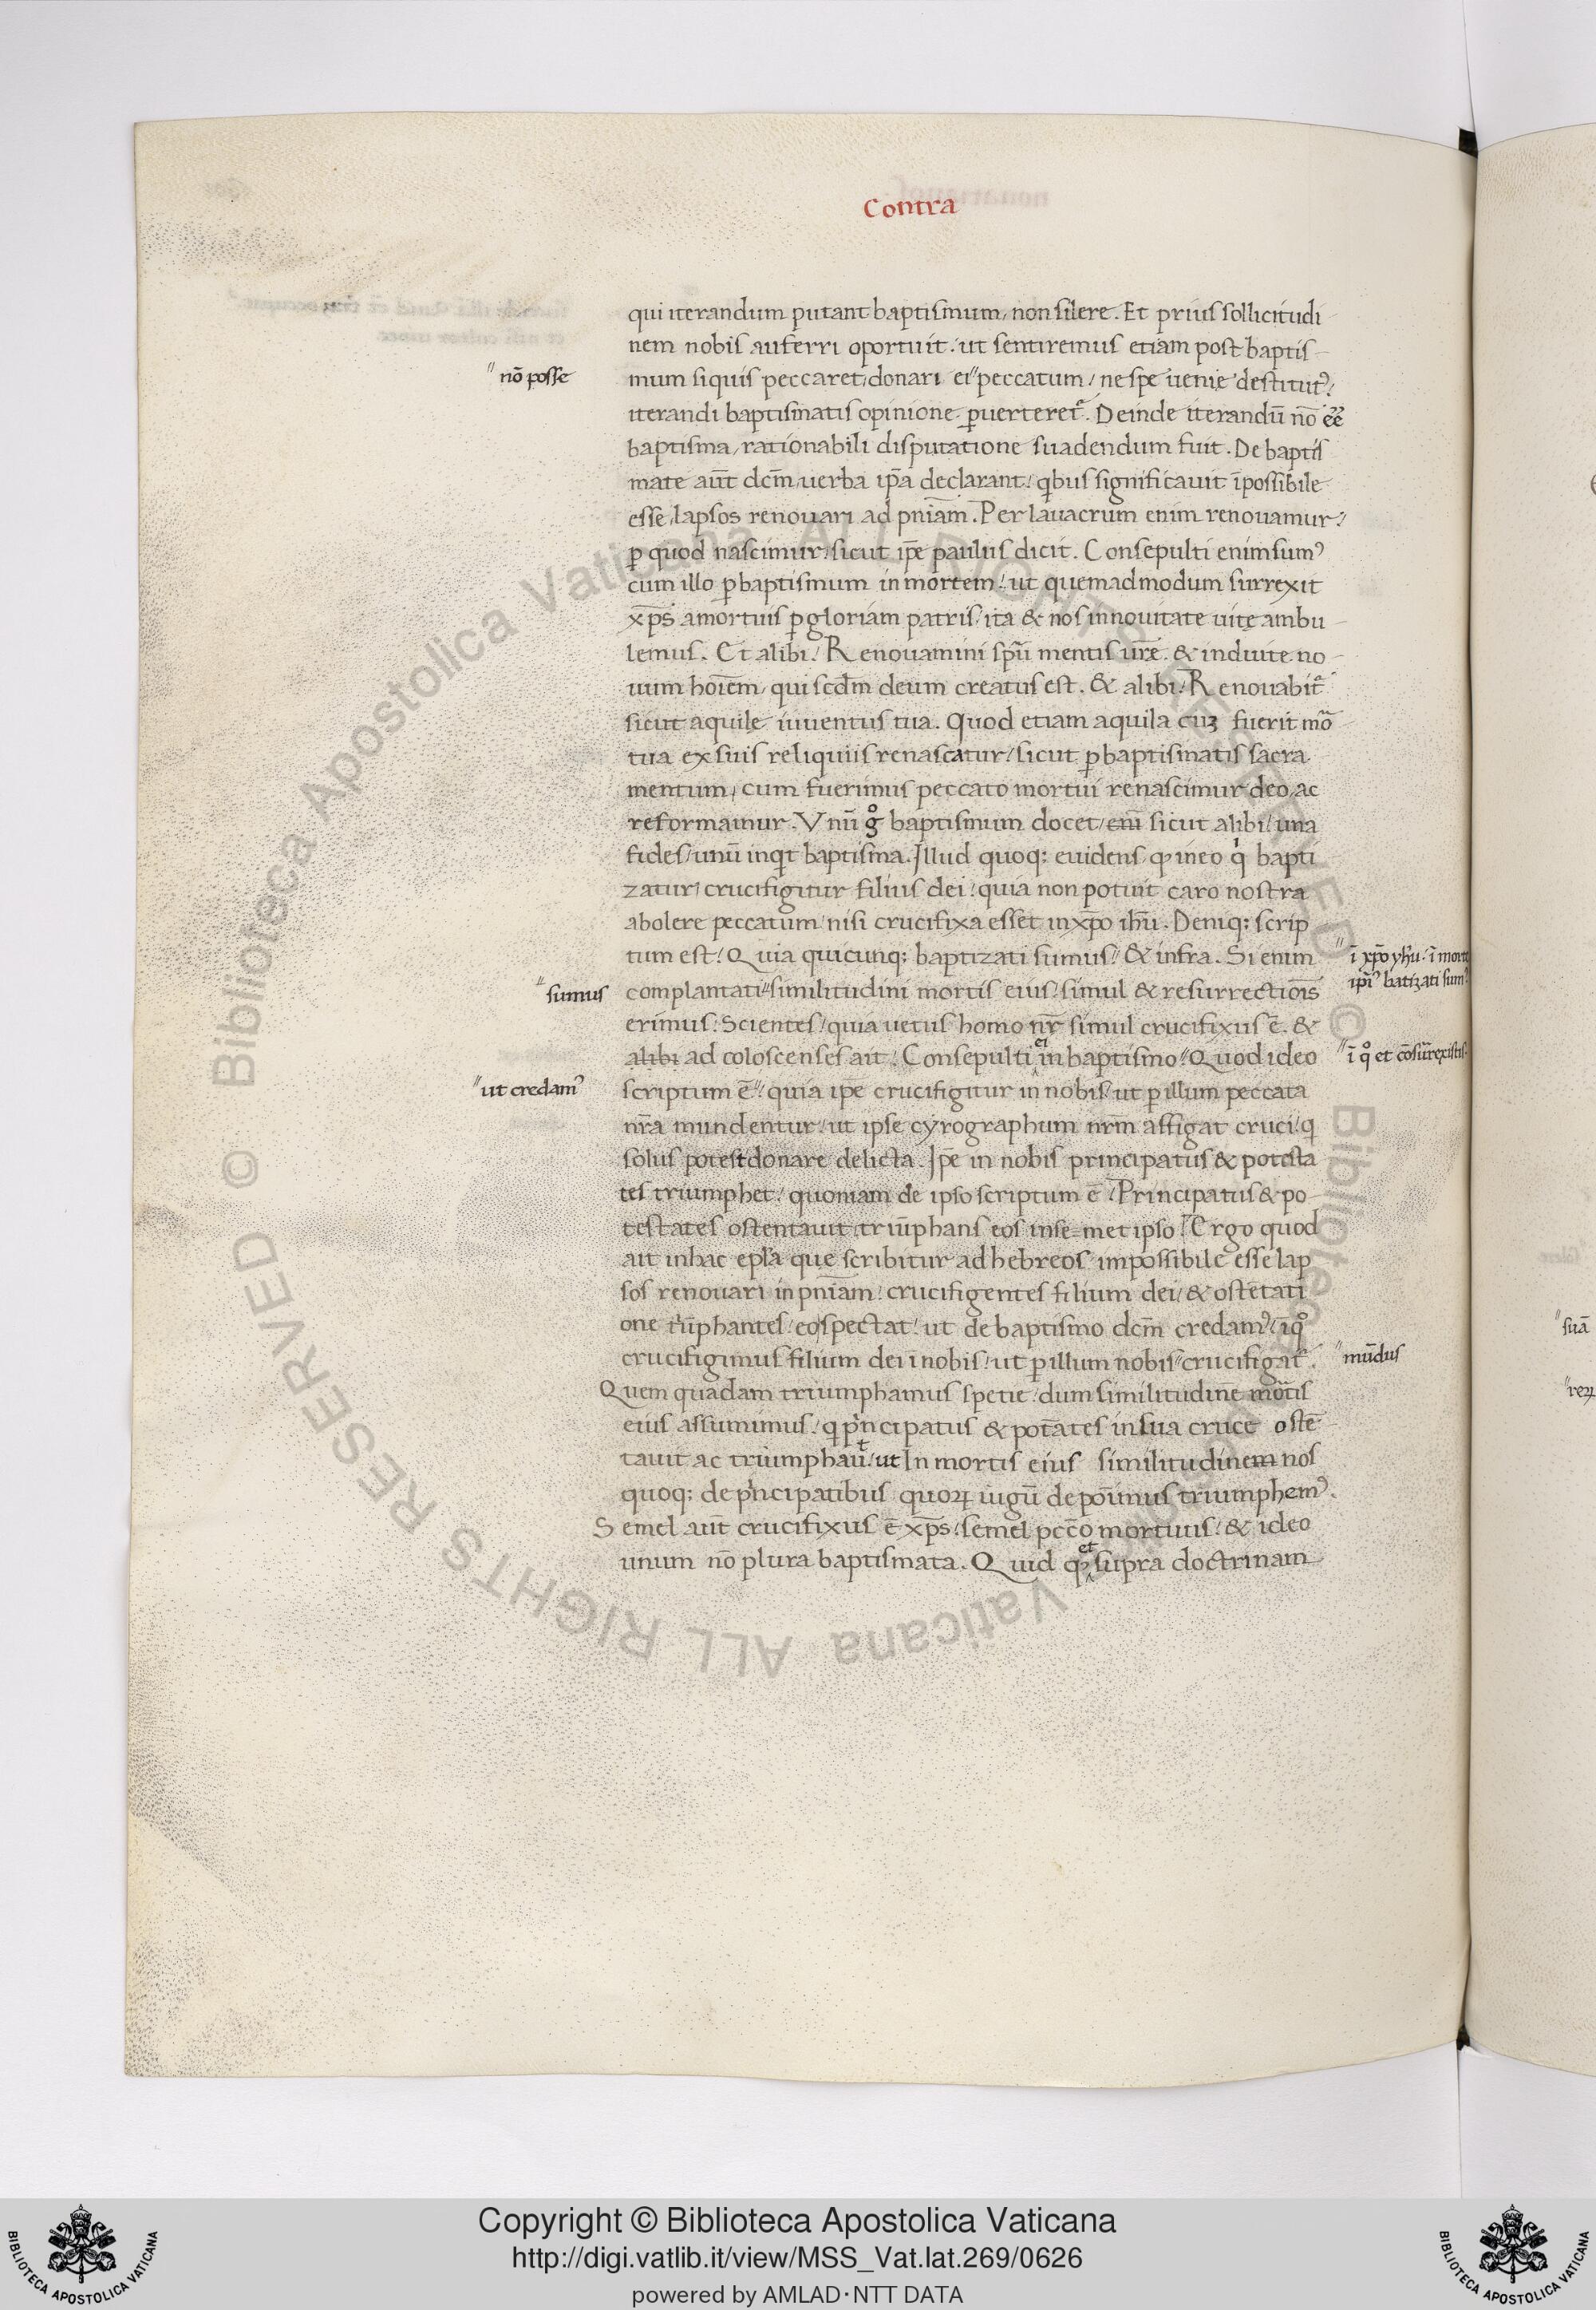 Contra
qui iterandum putant baptismum, non silere. Et prius sollicitudi
nem nobis auferri oportuit. ut sentiremus etiam post baptis
mum siquis peccaret, donari ei" peccatum, ne spe uenię destitut᾽,
" nō posse
iterandi baptismatis opinione ꝑuerteret᷒. Deinde iterandū nō eē
baptisma, rationabili disputatione suadendum fuit. De baptis
mate aūt dcm̄, uerba ip̄a declarant, qͥbus significauit īpossibile
esse, lapsos renouari ad pniam̄. Per lauacrum enim renouamur,
ꝑ quod nascimur, sicut ip̄e paulus dicit. Consepulti enim sum᾽
cum illo ꝑ baptismum in mortem, ut quemadmodum surrexit
xp̄s amortuis ꝑ gloriam patris, ita & nos innouitate uitę ambu
lemus. Et alibi. Renouamini spū mentis ur̄e. & induite no
uum hoiem̄, qui scdm̄ deum creatus est. & alibi. Renouabit᷒
sicut aquilę iuuentus tua. Quod etiam aquila cuꝫ fuerit mo᷒
tua ex suis reliquiis renascatur, sicut ꝑ baptismatis sacra
mentum, cum fuerimus peccato mortui renascimur deo, ac
reformamur. Vnū gͦ baptismum docet, eni̅ sicut alibi, una
fides, unū inqͥt baptisma. Illud quoqꝫ euidens ꝙ ineo qͥ bapti
zatur, crucifigitur filius dei, quia non potuit caro nostra
abolere peccatum, nisi crucifixa esset inxp̄o ihū. Deniqꝫ scrip
tum est, Quia quicunqꝫ baptizati sumus," & infra. Si enim
" ī xp̄o yħu. ī mort
ipi᾽ batizati sum᾽
complantati" similitudini mortis eius, simul & resurrectiois̄
" sumus
erimus. Scientes, quia uetus homo nr̄ simul crucifixus ē. &
alibi ad coloscenses ait, Consepulti ei in baptismo," Quod ideo
" ī qͦ et cōsurrexistis
scriptum ē," quia ip̄e crucifigitur in nobis, ut ꝑ illum peccata
" ut credam᾽
nr̄a mundentur, ut ipse cyrographum nrm̄ affigat cruci, q
solus potest donare delicta. Ip̄e in nobis principatus & potesta
tes triumphet, quoniam de ipso scriptum ē, Principatus & po
testates ostentauit triūphans eos inse=met ipso, Ergo quod
ait inhac epl̄a que scribitur ad hebreos impossibile esse lap
sos renouari in pniam̄, crucifigentes filium dei, & ostētati
one triūphantes, eo spectat, ut de baptismo dcm̄ credam᾽, īqͦ
crucifigimus filium dei īnobis, ut ꝑ illum nobis" crucifigat᷒.
" mūdus
Quem quadam triumphamus spetie, dum similitudinē mo᷒tis
eius assumimus, q pͥncipatus & potātes insua cruce ostē
tauit ac triumphauit, ut In mortis eius similitudinem nos
quoqꝫ de pͥncipatibus quoꝝ iugū depoīmus triumphem᾽.
Semel aūt crucifixus ē xp̄s, semel pccō mortuus, & ideo
unum nō plura baptismata. Quid qꝫ et supra doctrinam
" suā
" reꝝ
Copyright © Biblioteca Apostolica Vaticana
http://digi.vatlib.it/view/MSS_Vat.lat.269/0626
powered by AMLAD·NTT DATA
BIBLIOTECA APOSTOLICA VATICANA
BIBLIOTECA APOSTOLICA VATICANA
© Biblioteca Apostolica Vaticana ALL RIGHTS RESERVED © Biblioteca Apostolica Vaticana ALL RIGHTS RESERVED